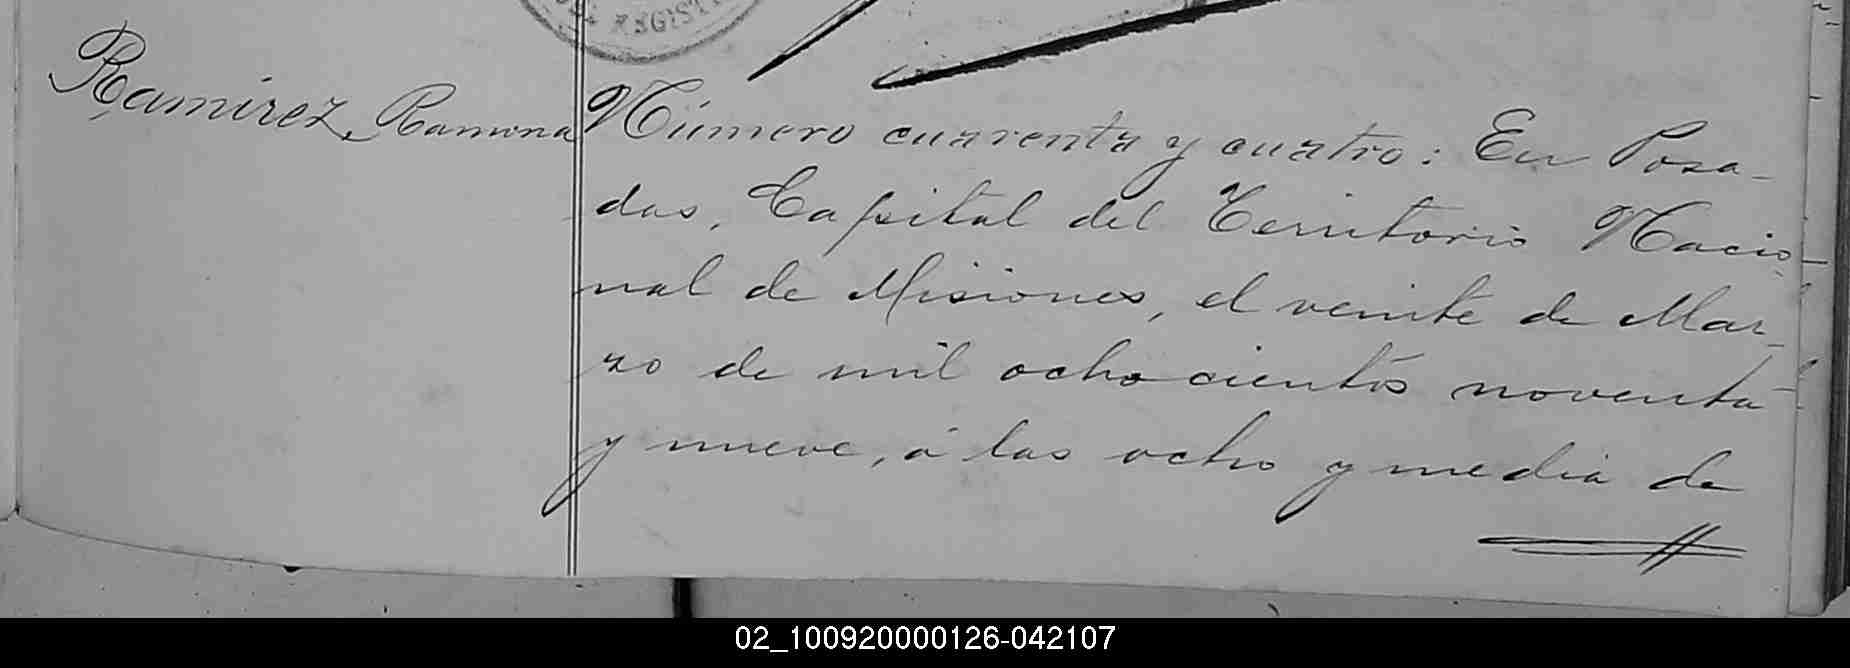 DEL REGIST
Ramirez, Ramona
Número cuarenta y cuatro: En Posa-
das, Capital del Territorio Nacio-
nal de Misiones, el veinte de Mar-
zo de mil ochocientos noventa
y nueve, á las ocho y media de
02_100920000126-042107